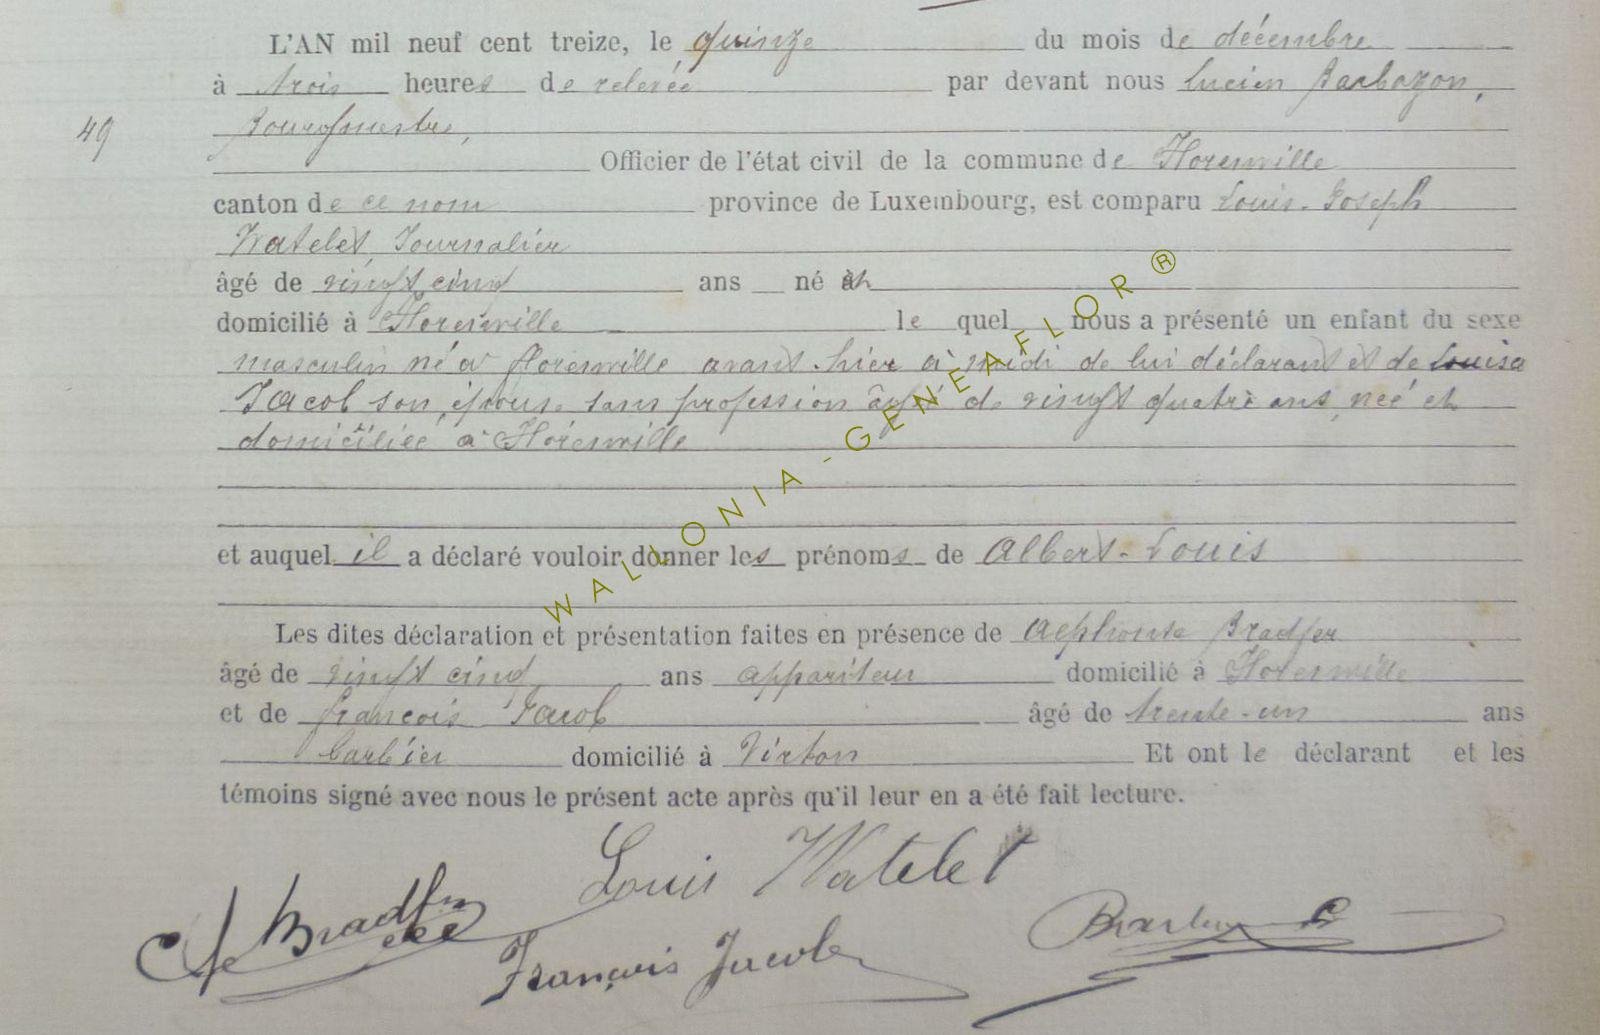 L'AN mil neuf cent treize, le quinze du mois de décembre
à trois heures de relevée par devant nous Lucien Barbazon,
49
Bourgmestre,
Officier de l'état civil de la commune de Florenville
canton de ce nom province de Luxembourg, est comparu Louis-Joseph
Watelet, Journalier
âgé de vingt cinq ans né et
domicilié à Florenville le quel nous a présenté un enfant du sexe
masculin né à Florenville avant-hier à midi de lui déclarant et de Louisa
Jacob son épouse sans profession âgée de vingt quatre ans née et
domiciliée à Florenville
et auquel il a déclaré vouloir donner les prénoms de Albert-Louis
Les dites déclaration et présentation faites en présence de Alphonse Bradfer
âgé de vingt cinq ans appariteur domicilié à Florenville
et de François Jacob âgé de trente-un ans
barbier domicilié à Virton Et ont le déclarant et les
témoins signé avec nous le présent acte après qu'il leur en a été fait lecture.
Louis Watelet
Bradfer
François Jacob
WALLONIA-GENEAFLOR®